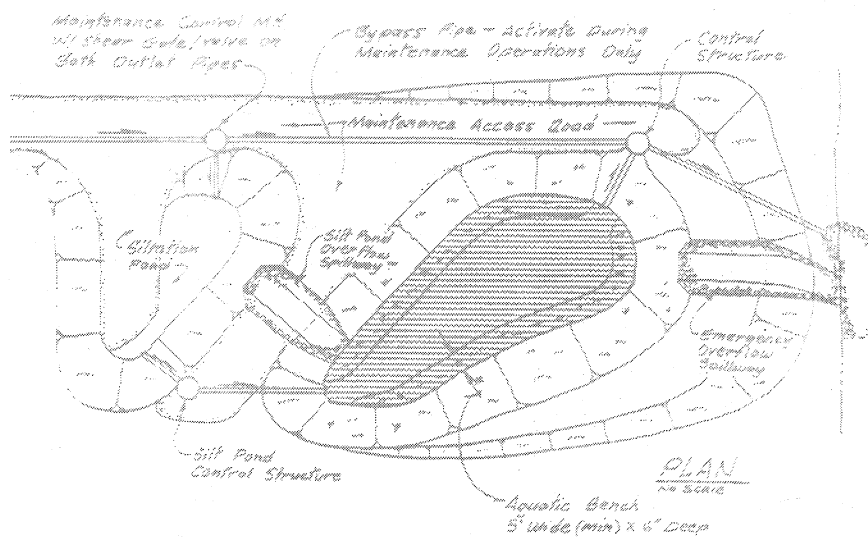 Maintenance Control MH
w/ Shear Gate/valve on
Both Outlet Pipes
Bypass Pipe – Activate During
Maintenance Operations Only
Control
Structure
Maintenance Access Road
Siltation
Pond
Silt Pond
Overflow
Spillway
Emergency
Overflow
Spillway
Silt Pond
Control Structure
PLAN
No Scale
Aquatic Bench
5' wide (min) x 6" Deep